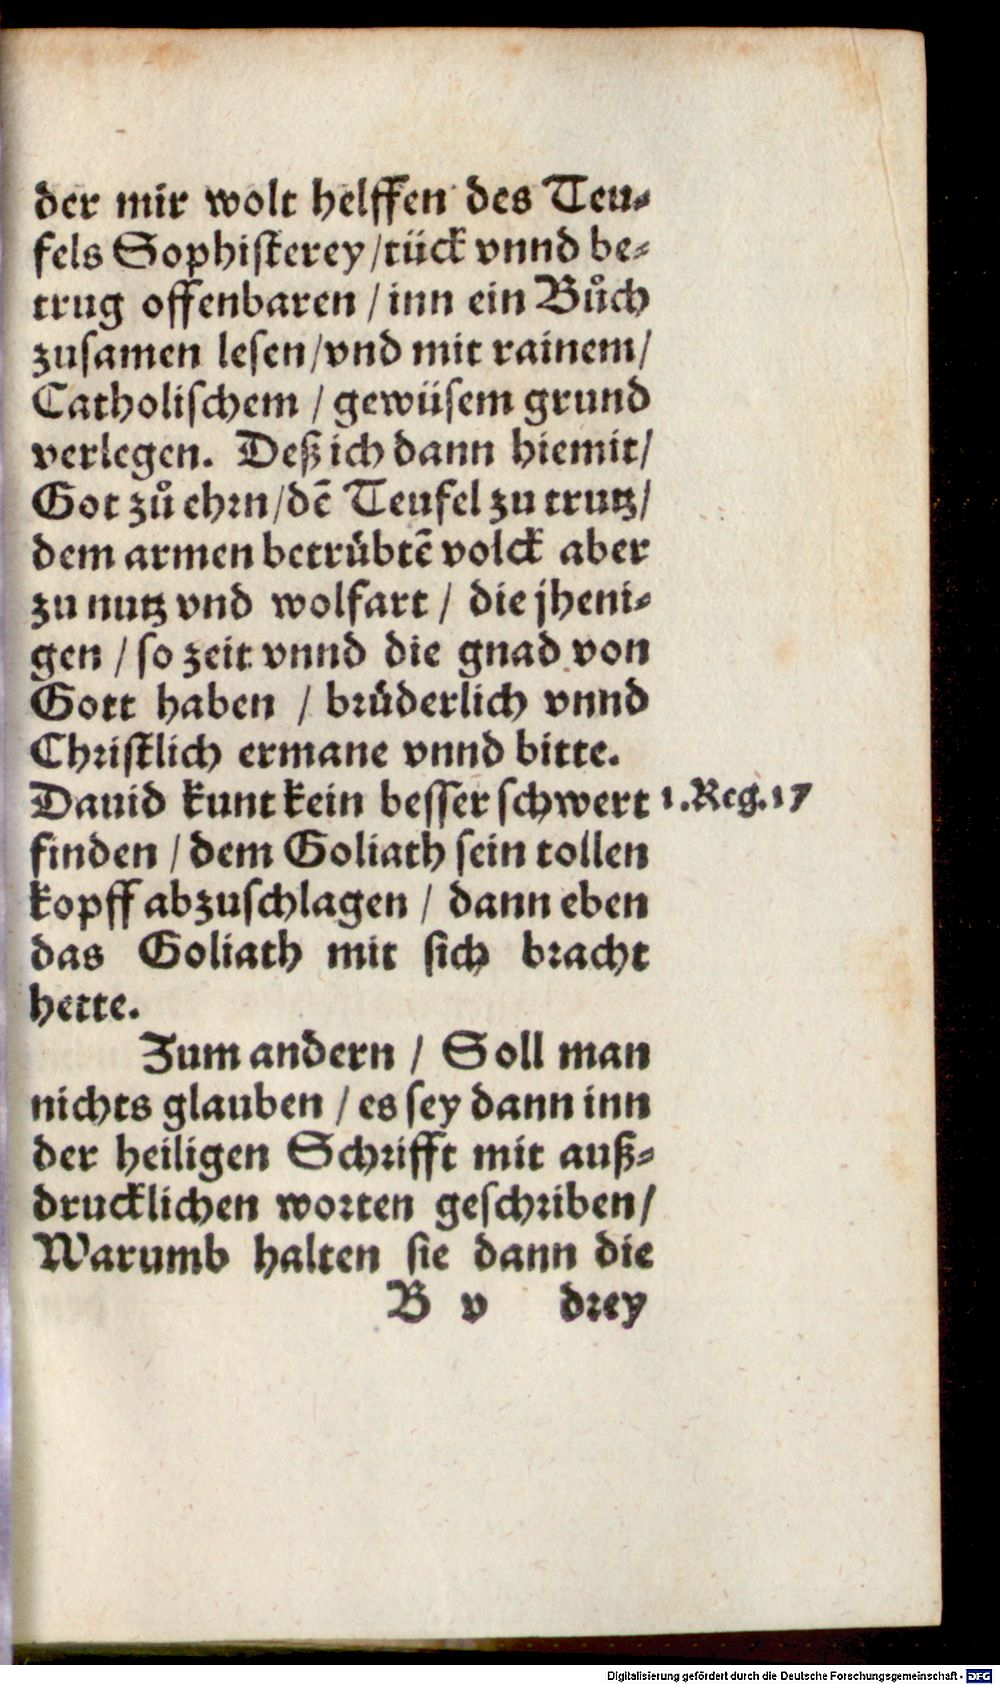 der mir wolt helffen des Teu⸗
fels Sophisterey/tück vnnd be⸗
trug offenbaren / inn ein Bůch
zusamen lesen/vnd mit rainem/
Catholischem / gewüsem grund
verlegen. Deß ich dann hiemit/
Got zů ehrn/dē Teufel zu trutz/
dem armen betrůbtē volck aber
zu nutz vnd wolfart / die jheni⸗
gen / so zeit vnnd die gnad von
Gott haben / brůderlich vnnd
Christlich ermane vnnd bitte.
Dauid kunt kein besser schwert 1.Reg.17
finden / dem Goliath sein tollen
kopff abzuschlagen / dann eben
das Goliath mit sich bracht
hette.
Zum andern / Soll man
nichts glauben / es sey dann inn
der heiligen Schrifft mit auß⸗
drucklichen worten geschriben/
Warumb halten sie dann die
B v drey
Digitalisierung gefördert durch die Deutsche Forschungsgemeinschaft - DFG